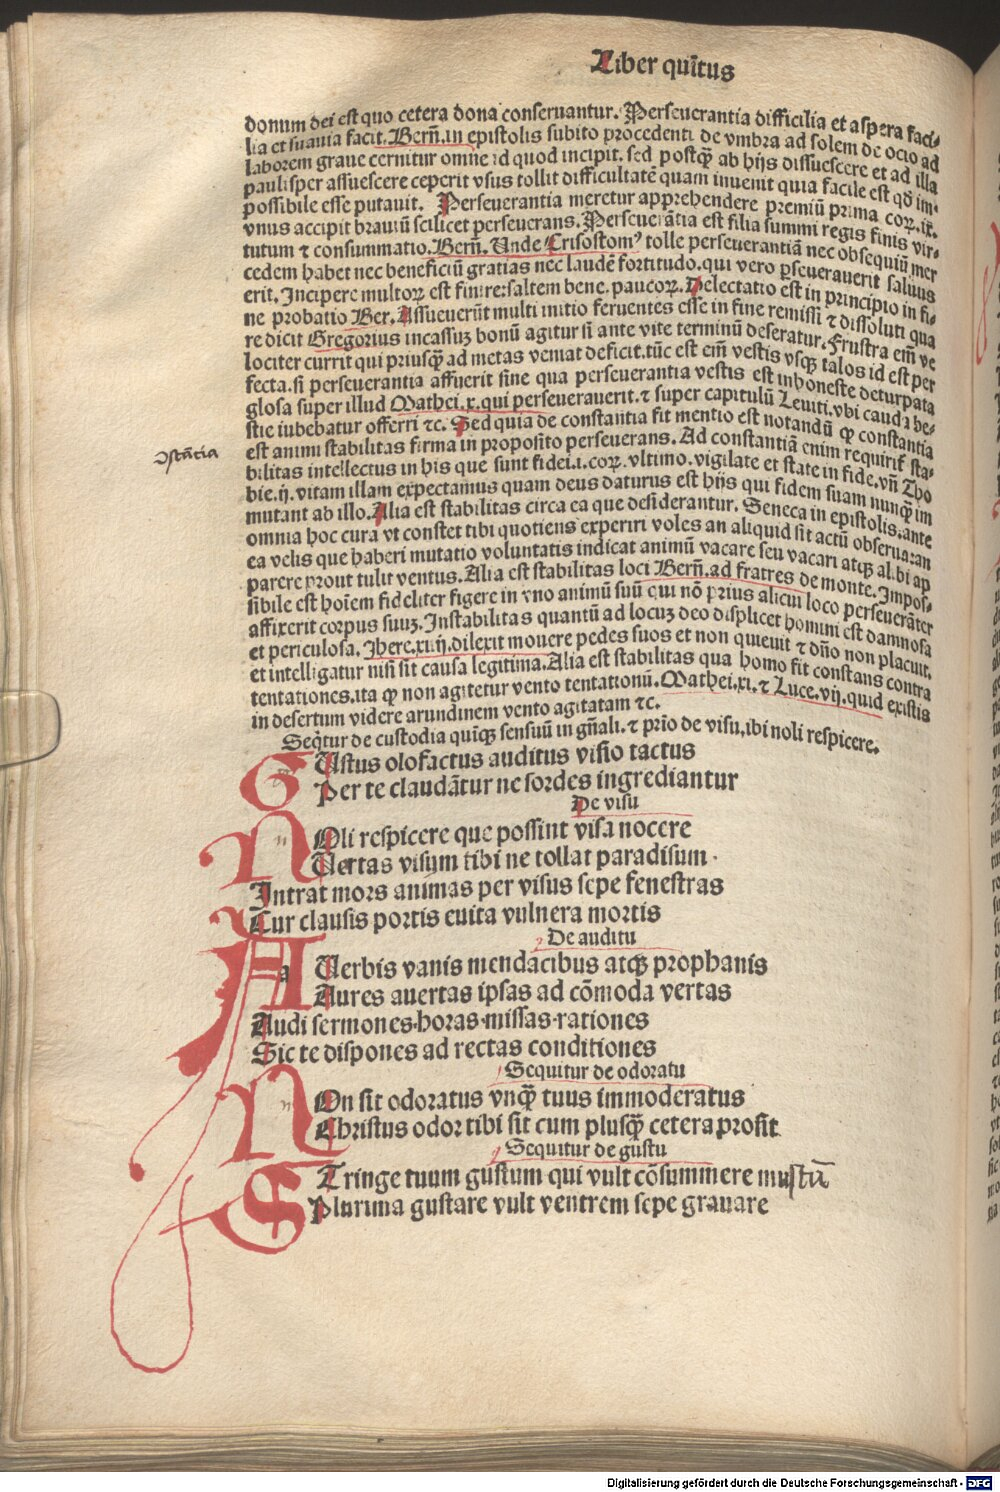 Liber quītus
donum dei est quo cetera dona conseruantur. Perseuerantia difficilia et aspera faci-
lia et suauia facit. Berñ. in epistolis subito procedenti de vmbra ad solem de ocio ad
laborem graue cernitur omne id quod incipit. sed postq̃ ab hijs dissuescere et ad illa
paulisper assuescere ceperit vsus tollit difficultatē quam inuenit quia facile est qð im-
possibile esse putauit. Perseuerantia meretur apprehendere premiū prima coꝝ. ix.
vnus accipit brauiū scilicet perseuerans. Perseuerātia est filia summi regis finis vir-
tutum ⁊ consummatio. Berñ. Unde Crisostomꝰ tolle perseuerantiā nec obsequiū mer
cedem habet nec beneficiū gratias nec laudē fortitudo. qui vero pseuerauerit saluus
erit. Incipere multoꝝ est finire: saltem bene. paucoꝝ. Delectatio est in principio in fi-
ne probatio Ber. Assueuerūt multi initio feruentes esse in fine remissi ⁊ dissoluti qua
re dicit Gregorius incassuꝫ bonū agitur si ante vite terminū deseratur. Frustra em̄ ve
lociter currit qui priusq̃ ad metas veniat deficit. tūc est em̄ vestis vsqꝫ talos id est per
fecta. si perseuerantia affuerit sine qua perseuerantia vestis est inhoneste deturpata
glosa super illud Mathei. x. qui perseuerauerit. ⁊ super capitulū Leuiti. vbi cauda ho-
stie iubebatur offerri ⁊c. Sed quia de constantia fit mentio est notandū qp constantia
est animi stabilitas firma in proposito perseuerans. Ad constantiā enim requirit̄ sta-
ↄstātia
bilitas intellectus in his que sunt fidei. i. coꝝ. vltimo. vigilate et state in fide. vñ Tho
bie. ij. vitam illam expectamus quam deus daturus est hijs qui fidem suam nunq̃ im
mutant ab illo. Alia est stabilitas circa ea que desiderantur. Seneca in epistolis. ante
omnia hoc cura vt constet tibi quotiens experiri voles an aliquid sit actū obserua. an
ea velis que haberi mutatio voluntatis indicat animū vacare seu vacari atqꝫ alibi ap
parere prout tulit ventus. Alia est stabilitas loci Berñ. ad fratres de monte. Impos-
sibile est hoīem fideliter figere in vno animū suū qui nō prius alicui loco perseuerāter
affixerit corpus suuꝫ. Instabilitas quantū ad locuꝫ deo displicet homini est damnosa
et periculosa. Jhere. xiiij. dilexit mouere pedes suos et non quieuit ⁊ dño non placuit.
et intelligatur nisi sit causa legitima. Alia est stabilitas qua homo fit constans contra
tentationes. ita qp non agitetur vento tentationū. Mathei. xi. ⁊ Luce. vij. quid existis
in desertum videre arundinem vento agitatam ⁊c.
Seqtur de custodia quīqꝫ sensuū in gñali. ⁊ prīo de visu, ibi noli respicere.
GUstus olofactus auditus visio tactus
Per te claudātur ne sordes ingrediantur
De visu
NOli respicere que possint visa nocere
Uertas visum tibi ne tollat paradisum.
Intrat mors animas per visus sepe fenestras
Cur clausis portis euita vulnera mortis
De auditu
A Uerbis vanis mendacibus atqꝫ prophanis
Aures auertas ipsas ad cōmoda vertas
Audi sermones·horas·missas·rationes
Sic te dispones ad rectas conditiones
Sequitur de odoratu
NOn sit odoratus vnq̃ tuus immoderatus
Christus odor tibi sit cum plusq̃ cetera prosit
Sequitur de gustu
STringe tuum gustum qui vult cōsummere mustū
Plurima gustare vult ventrem sepe grauare
Digitalisierung gefördert durch die Deutsche Forschungsgemeinschaft - DFG